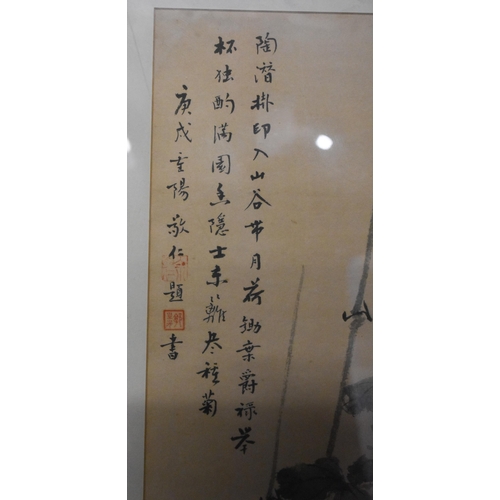 陶潛掛印入山谷带月荷鋤棄爵祿举
杯独酌滿園香隱士東籬尽種菊
庚戌重陽敬仁題書